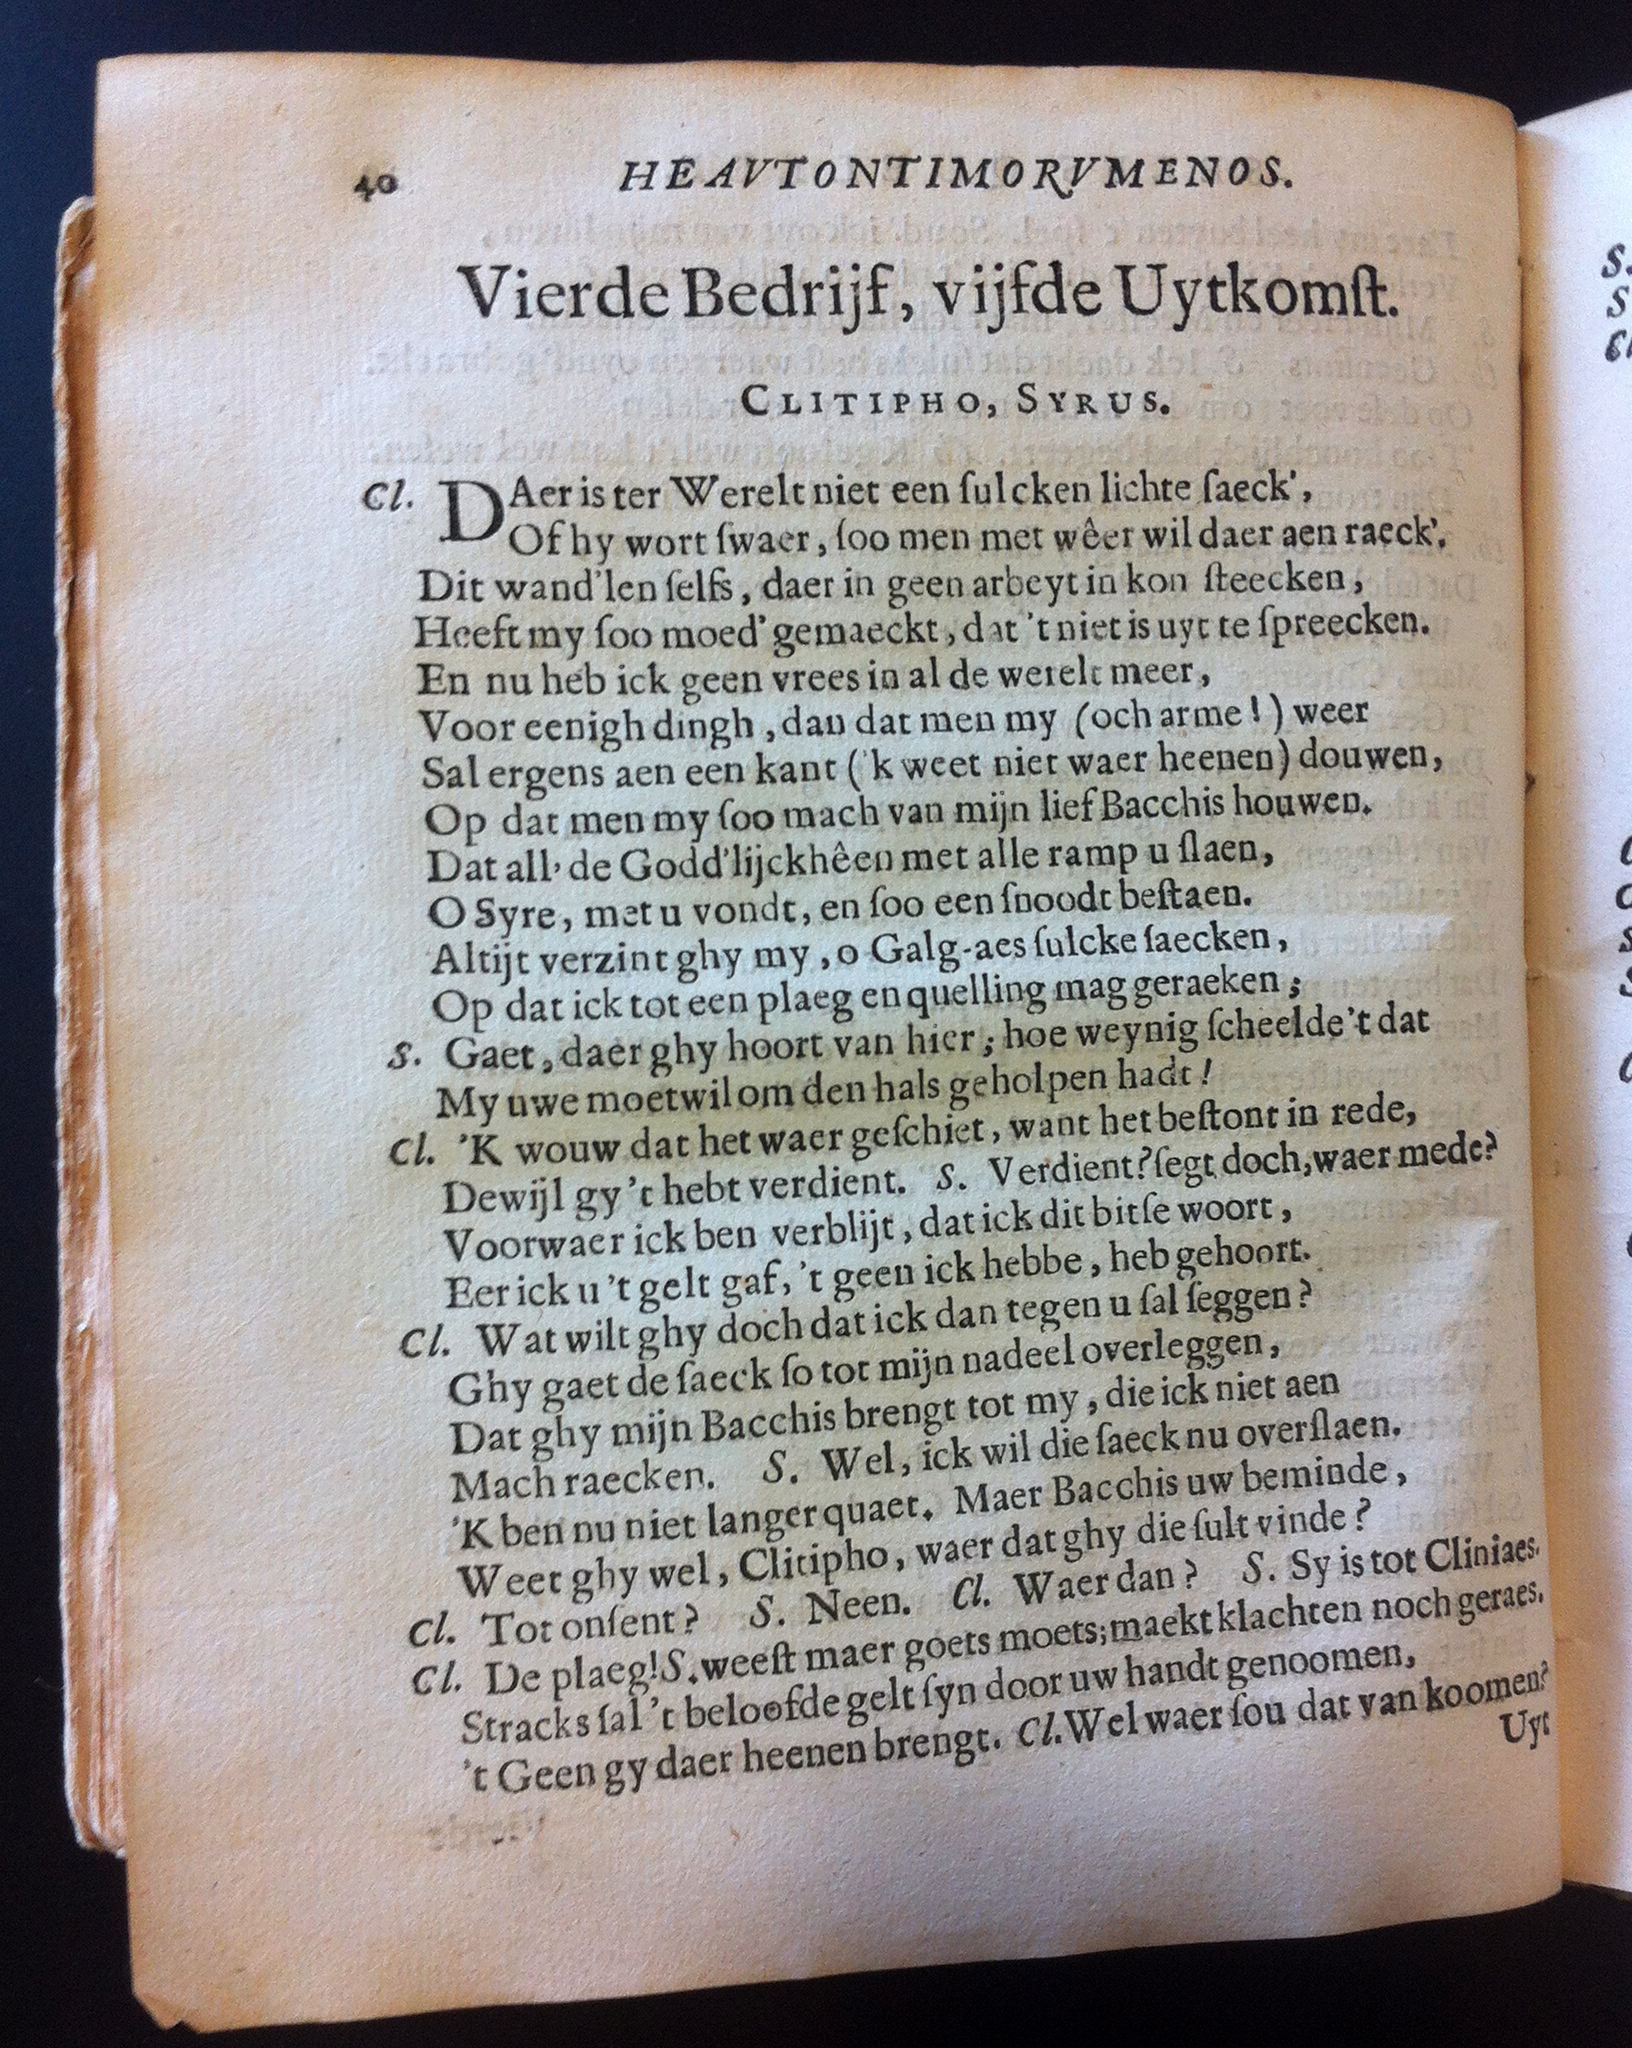 40 HEAVTONTIMORVMENOS.
Vierde Bedrijf, vijfde Uytkomſt.
CLITIPHO, SYRUS.
Cl. DAer is ter Werelt niet een ſulcken lichte ſaeck',
Of hy wort ſwaer, ſoo men met wêer wil daer aen raeck'.
Dit wand'len ſelfs, daer in geen arbeyt in kon ſteecken,
Heeft my ſoo moed' gemaeckt, dat 't niet is uyt te ſpreecken.
En nu heb ick geen vrees in al de werelt meer,
Voor eenigh dingh, dan dat men my (och arme!) weer
Sal ergens aen een kant ('k weet niet waer heenen) douwen,
Op dat men my ſoo mach van mijn lief Bacchis houwen.
Dat all' de Godd'lijckhêen met alle ramp u ſlaen,
O Syre, met u vondt, en ſoo een ſnoodt beſtaen.
Altijt verzint ghy my, o Galg-aes ſulcke ſaecken,
Op dat ick tot een plaeg en quelling mag geraeken;
S. Gaet, daer ghy hoort van hier; hoe weynig ſcheelde 't dat
My uwe moetwil om den hals geholpen hadt!
Cl. 'K wouw dat het waer geſchiet, want het beſtont in rede,
Dewijl gy 't hebt verdient. S. Verdient? ſegt doch, waer mede?
Voorwaer ick ben verblijt, dat ick dit bitſe woort,
Eer ick u 't gelt gaf, 't geen ick hebbe, heb gehoort.
Cl. Wat wilt ghy doch dat ick dan tegen u ſal ſeggen?
Ghy gaet de ſaeck ſo tot mijn nadeel overleggen,
Dat ghy mijn Bacchis brengt tot my, die ick niet aen
Mach raecken. S. Wel, ick wil die ſaeck nu overſlaen.
'K ben nu niet langer quaet. Maer Bacchis uw beminde,
Weet ghy wel, Clitipho, waer dat ghy die ſult vinde?
Cl. Tot onſent? S. Neen. Cl. Waer dan? S. Sy is tot Cliniaes.
Cl. De plaeg! S. weeſt maer goets moets; maekt klachten noch geraes.
Stracks ſal 't beloofde gelt ſyn door uw handt genoomen,
't Geen gy daer heenen brengt. Cl. Wel waer ſou dat van koomen?
Uyt